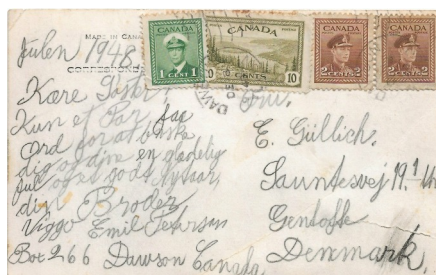 Julen 1948
MADE IN CANA
CORRESPONDE
CANADA
1 CENT 1
CANADA
CENTS 10
CANADA
2 CENTS 2
CANADA
2 CENTS 2
Kære Søster,
Kun et Par faa
Ord for at ønske
dig og dine en glædelig
Jul og et godt Nytaar,
din Broder
Viggo Emil Petersen
Box 266 Dawson Canada
Fru.
E. Güllich.
Sauntesvej 19.1
Gentofte
Denmark